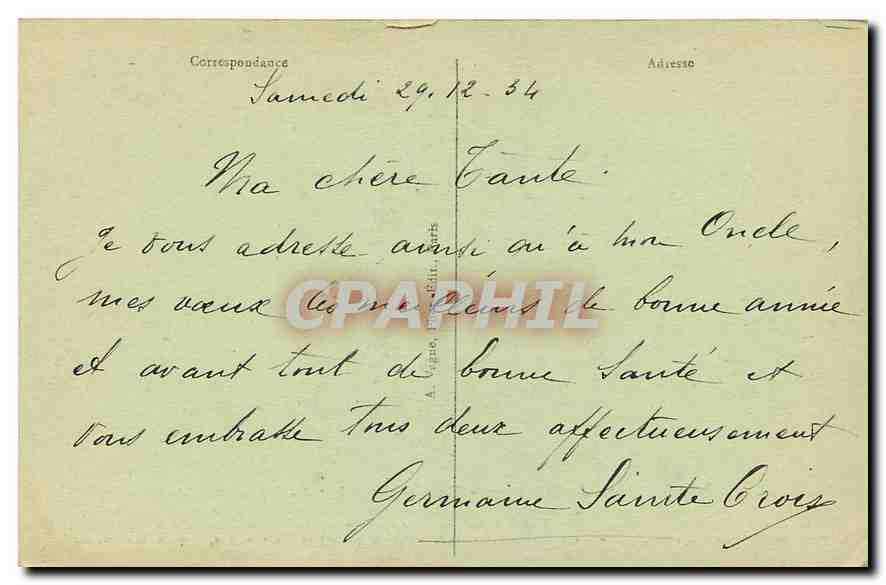 Correspondance
Adresse
Samedi 29.12-34
Ma chère Tante.
Je vous adresse ainsi qu'à mon Oncle,
mes vœux les meilleurs de bonne année
et avant tout de bonne santé et
vous embrasse tous deux affectueusement
Germaine Sainte Croix
CPAPHIL
A. Vègne, Édit., Paris